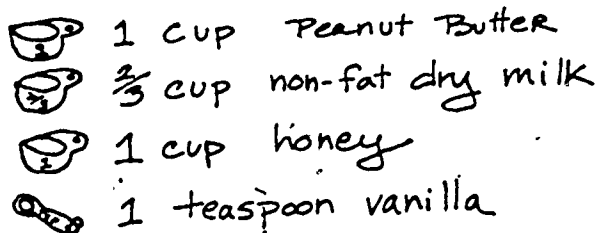 1 cup Peanut Butter
2/3 cup non-fat dry milk
1 cup honey
1 teaspoon vanilla